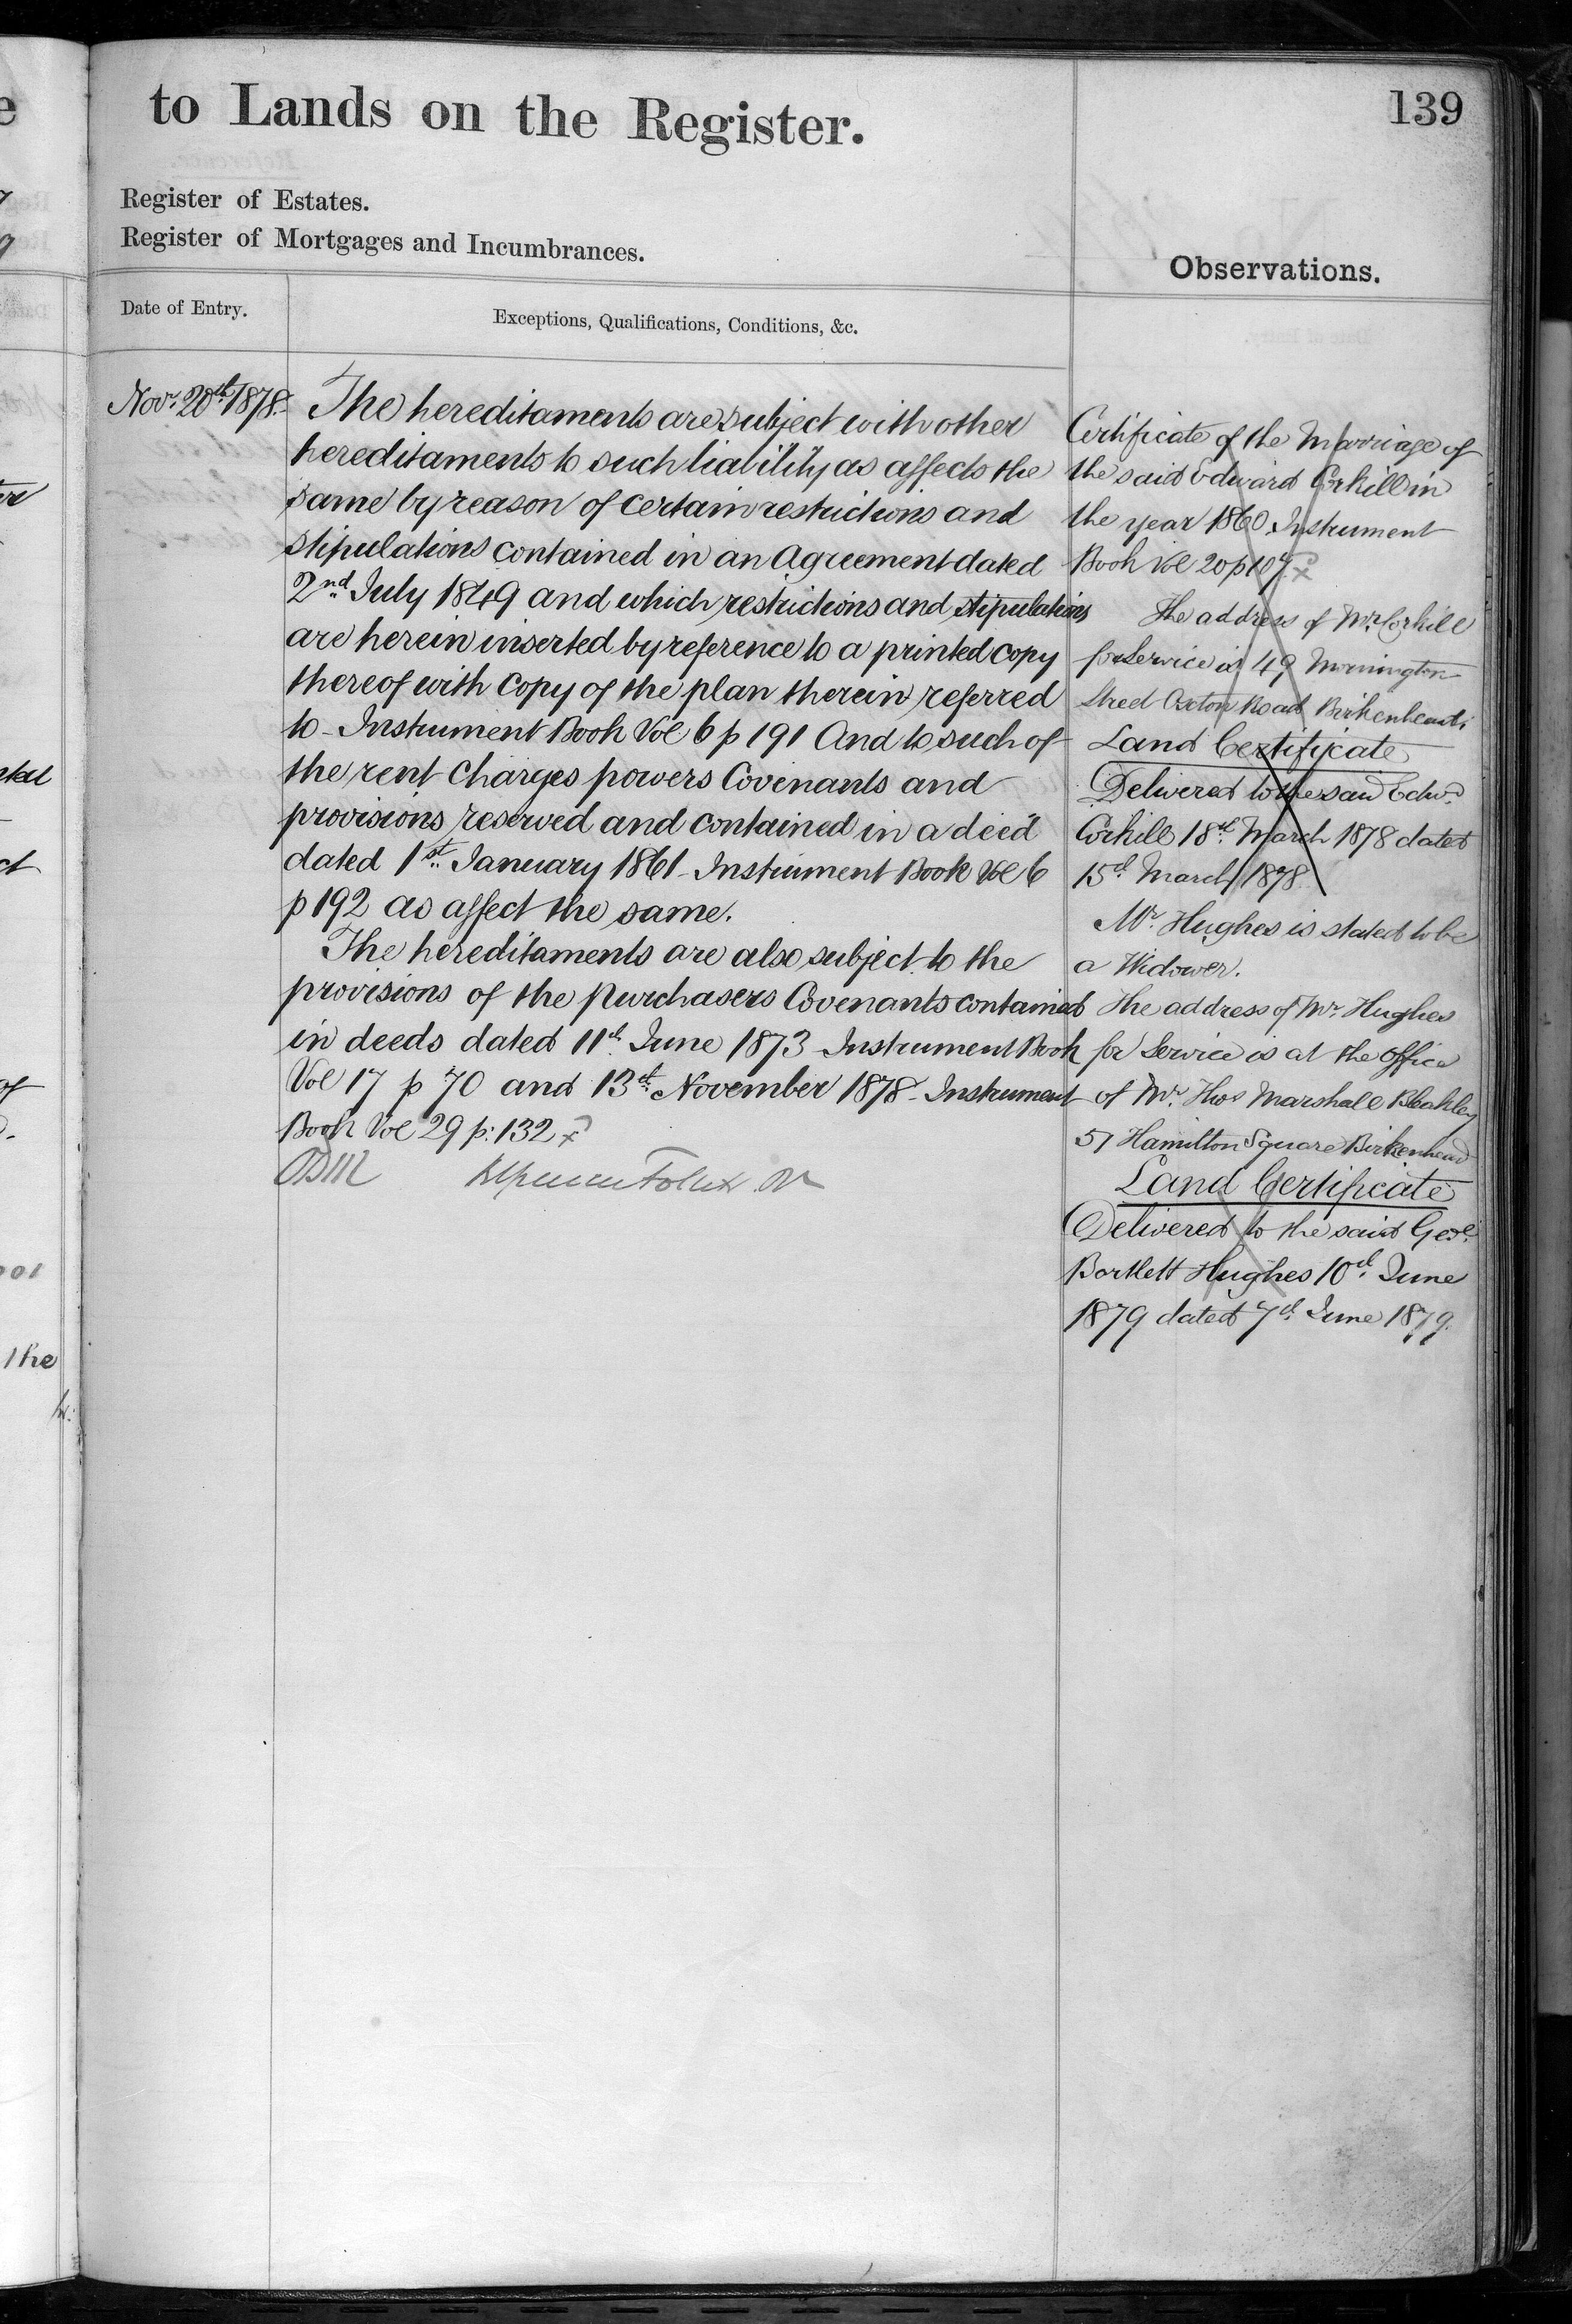 to Lands on the Register.
139
Register of Estates.
Register of Mortgages and Incumbrances.
Observations.
Date of Entry.
Exceptions, Qualifications, Conditions, &c.
Novr. 20th 1878.
The hereditaments are subject with other
hereditaments to such liability as affects the
same by reason of certain restrictions and
stipulations contained in an Agreement dated
2nd July 1849 and which restrictions and stipulations
are herein inserted by reference to a printed copy
thereof with copy of the plan therein referred
to - Instrument Book Vol 6 p 191 And to such of
the rent charges powers Covenants and
provisions reserved and contained in a deed
dated 1st January 1861 - Instrument Book Vol 6
p 192 as affect the same.
The hereditaments are also subject to the
provisions of the purchasers Covenants contained
in deeds dated 11th June 1873 - Instrument Book
Vol 17 p 70 and 13th November 1878 - Instrument
Book Vol 29 p: 132
Certificate of the Marriage of
the said Edward Corkill in
the year 1860 Instrument
Book Vol 20 p 107
The address of Mr. Corkill
for Service is 49 Mornington
Street Oxton Road Birkenhead.
Land Certificate
Delivered to the said Edwd.
Corkill 18th March 1878 dated
15th March 1878.
Mr. Hughes is stated to be
a Widower.
The address of Mr. Hughes
for Service is at the office
of Mr. Thos Marshall Bleakley
51 Hamilton Square Birkenhead
Land Certificate
Delivered to the said Geoe.
Bartlett Hughes 10th June
1879 dated 7th June 1879.
the